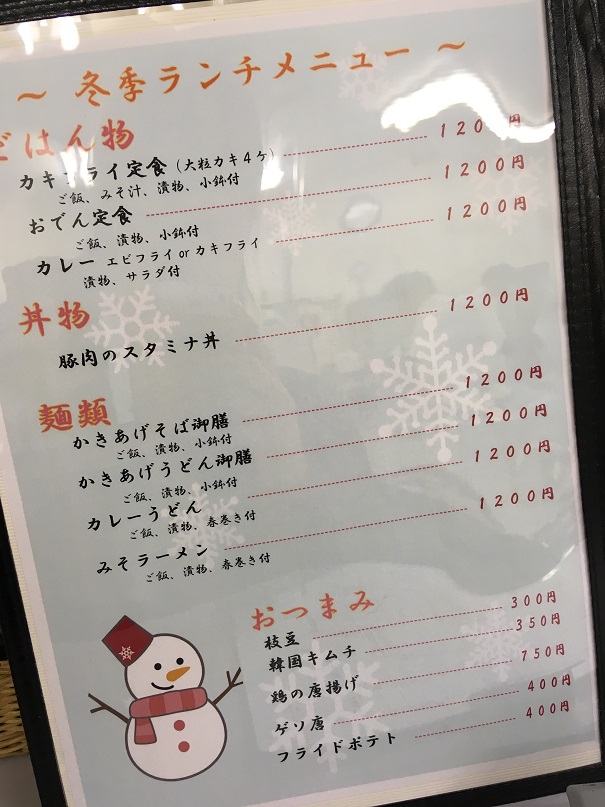 ～ 冬季ランチメニュー ～
ごはん物
カキフライ定食（大粒カキ４ケ） １２００円
ご飯、みそ汁、漬物、小鉢付
おでん定食 １２００円
ご飯、漬物、小鉢付
カレー エビフライ or カキフライ １２００円
漬物、サラダ付
丼物
豚肉のスタミナ丼 １２００円
麺類
かきあげそば御膳 １２００円
ご飯、漬物、小鉢付
かきあげうどん御膳 １２００円
ご飯、漬物、小鉢付
カレーうどん １２００円
ご飯、漬物、春巻き付
みそラーメン １２００円
ご飯、漬物、春巻き付
おつまみ
枝豆 ３００円
韓国キムチ ３５０円
鶏の唐揚げ ７５０円
ゲソ唐 ４００円
フライドポテト ４００円